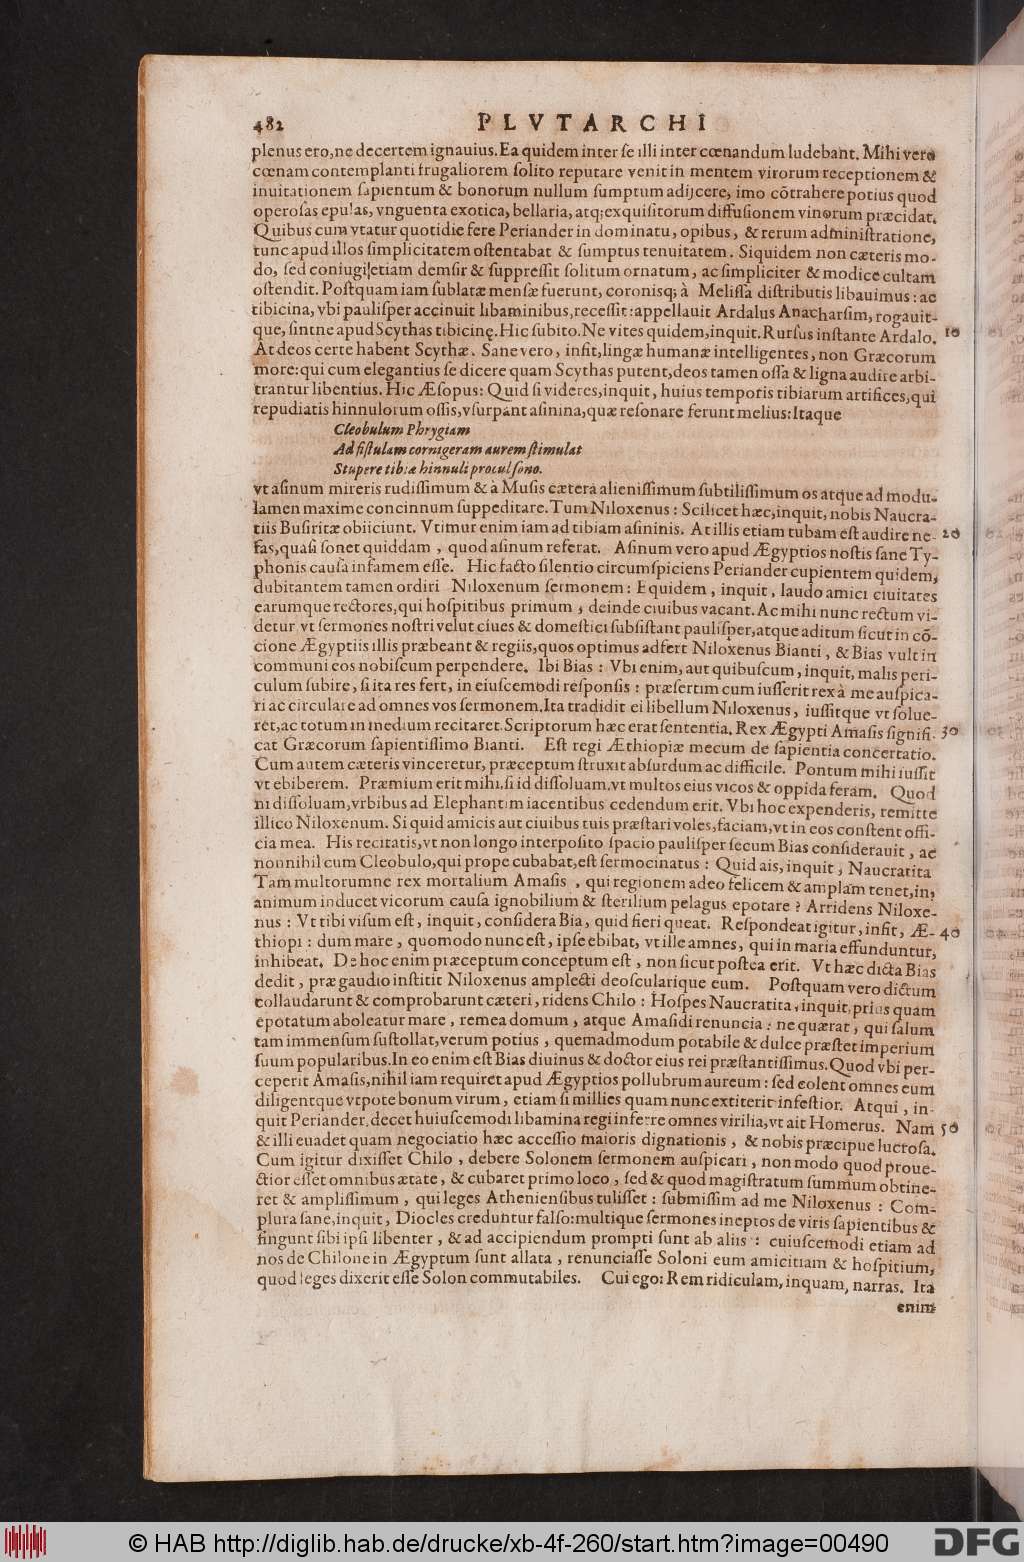 482 PLVTARCHI
plenus ero, ne decertem ignauius. Ea quidem inter se illi inter cœnandum ludebant. Mihi vero
cœnam contemplanti frugaliorem solito reputare venit in mentem virorum receptionem &
inuitationem sapientum & bonorum nullum sumptum adijcere, imo cōtrahere potius quod
operosas epulas, vnguenta exotica, bellaria, atq; exquisitorum diffusionem vinorum præcidat.
Quibus cum vtatur quotidie fere Periander in dominatu, opibus, & rerum administratione,
tunc apud illos simplicitatem ostentabat & sumptus tenuitatem. Siquidem non cæteris mo-
do, sed coniugi etiam demsit & suppressit solitum ornatum, ac simpliciter & modice cultam
ostendit. Postquam iam sublatæ mensæ fuerunt, coronisq; à Melissa distributis libauimus: ac
tibicina, vbi paulisper accinuit libaminibus, recessit: appellauit Ardalus Anacharsim, rogauit-
que, sintne apud Scythas tibicinę. Hic subito. Ne vites quidem, inquit. Rursus instante Ardalo. 10
At deos certe habent Scythæ. Sane vero, infit, lingæ humanæ intelligentes, non Græcorum
more: qui cum elegantius se dicere quam Scythas putent, deos tamen ossa & ligna audire arbi-
trantur libentius. Hic Æsopus: Quid si videres, inquit, huius temporis tibiarum artifices, qui
repudiatis hinnulorum ossis, vsurpant asinina, quæ resonare ferunt melius: Itaque
Cleobulum Phrygiam
Ad fistulam cornigeram aurem stimulat
Stupere tibiæ hinnuli procul sono.
vt asinum mireris rudissimum & à Musis cætera alienissimum subtilissimum os atque ad modu-
lamen maxime concinnum suppeditare. Tum Niloxenus: Scilicet hæc, inquit, nobis Naucra-
tiis Busiritæ obiiciunt. Vtimur enim iam ad tibiam asininis. At illis etiam tubam est audire ne- 20
fas, quasi sonet quiddam, quod asinum referat. Asinum vero apud Ægyptios nostis sane Ty-
phonis causa infamem esse. Hic facto silentio circumspiciens Periander cupientem quidem,
dubitantem tamen ordiri Niloxenum sermonem: Equidem, inquit, laudo amici ciuitates
earumque rectores, qui hospitibus primum, deinde ciuibus vacant. Ac mihi nunc rectum vi-
detur vt sermones nostri velut ciues & domestici subsistant paulisper, atque aditum sicut in cō-
cione Ægyptiis illis præbeant & regiis, quos optimus adfert Niloxenus Bianti, & Bias vult in
communi eos nobiscum perpendere. Ibi Bias: Vbi enim, aut quibuscum, inquit, malis peri-
culum subire, si ita res fert, in eiuscemodi responsis: præsertim cum iusserit rex à me auspica-
ri ac circulare ad omnes vos sermonem. Ita tradidit ei libellum Niloxenus, iussitque vt solue-
ret, ac totum in medium recitaret. Scriptorum hæc erat sententia. Rex Ægypti Amasis signifi- 30
cat Græcorum sapientissimo Bianti. Est regi Æthiopiæ mecum de sapientia concertatio.
Cum autem cæteris vinceretur, præceptum struxit absurdum ac difficile. Pontum mihi iussit
vt ebiberem. Præmium erit mihi, si id dissoluam, vt multos eius vicos & oppida feram. Quod
ni dissoluam, vrbibus ad Elephantim iacentibus cedendum erit. Vbi hoc expenderis, remitte
illico Niloxenum. Si quid amicis aut ciuibus tuis præstari voles, faciam, vt in eos constent offi-
cia mea. His recitatis, vt non longo interposito spacio paulisper secum Bias considerauit, ac
nonnihil cum Cleobulo, qui prope cubabat, est sermocinatus: Quid ais, inquit, Naucratita
Tam multorumne rex mortalium Amasis, qui regionem adeo felicem & amplam tenet, in,
animum inducet vicorum causa ignobilium & sterilium pelagus epotare? Arridens Niloxe-
nus: Vt tibi visum est, inquit, considera Bia, quid fieri queat. Respondeat igitur, infit, Æ- 40
thiopi: dum mare, quomodo nunc est, ipse ebibat, vt ille amnes, qui in maria effunduntur,
inhibeat. De hoc enim præceptum conceptum est, non sicut postea erit. Vt hæc dicta Bias
dedit, præ gaudio institit Niloxenus amplecti deoscularique eum. Postquam vero dictum
collaudarunt & comprobarunt cæteri, ridens Chilo: Hospes Naucratita, inquit, prius quam
epotatum aboleatur mare, remea domum, atque Amasidi renuncia: ne quærat, qui salum
tam immensum sustollat, verum potius, quemadmodum potabile & dulce præstet imperium
suum popularibus. In eo enim est Bias diuinus & doctor eius rei præstantissimus. Quod vbi per-
ceperit Amasis, nihil iam requiret apud Ægyptios pollubrum aureum: sed colent omnes eum
diligentque vtpote bonum virum, etiam si millies quam nunc extiterit infestior. Atqui, in-
quit Periander, decet huiuscemodi libamina regi inferre omnes virilia, vt ait Homerus. Nam 50
& illi euadet quam negociatio hæc accessio maioris dignationis, & nobis præcipue lucrosa.
Cum igitur dixisset Chilo, debere Solonem sermonem auspicari, non modo quod proue-
ctior esset omnibus ætate, & cubaret primo loco, sed & quod magistratum summum obtine-
ret & amplissimum, qui leges Atheniensibus tulisset: submissim ad me Niloxenus: Com-
plura sane, inquit, Diocles creduntur falso: multique sermones ineptos de viris sapientibus &
fingunt sibi ipsi libenter, & ad accipiendum prompti sunt ab aliis: cuiuscemodi etiam ad
nos de Chilone in Ægyptum sunt allata, renunciasse Soloni eum amicitiam & hospitium,
quod leges dixerit esse Solon commutabiles. Cui ego: Rem ridiculam, inquam, narras. Ita
enim
© HAB http://diglib.hab.de/drucke/xb-4f-260/start.htm?image=00490
DFG